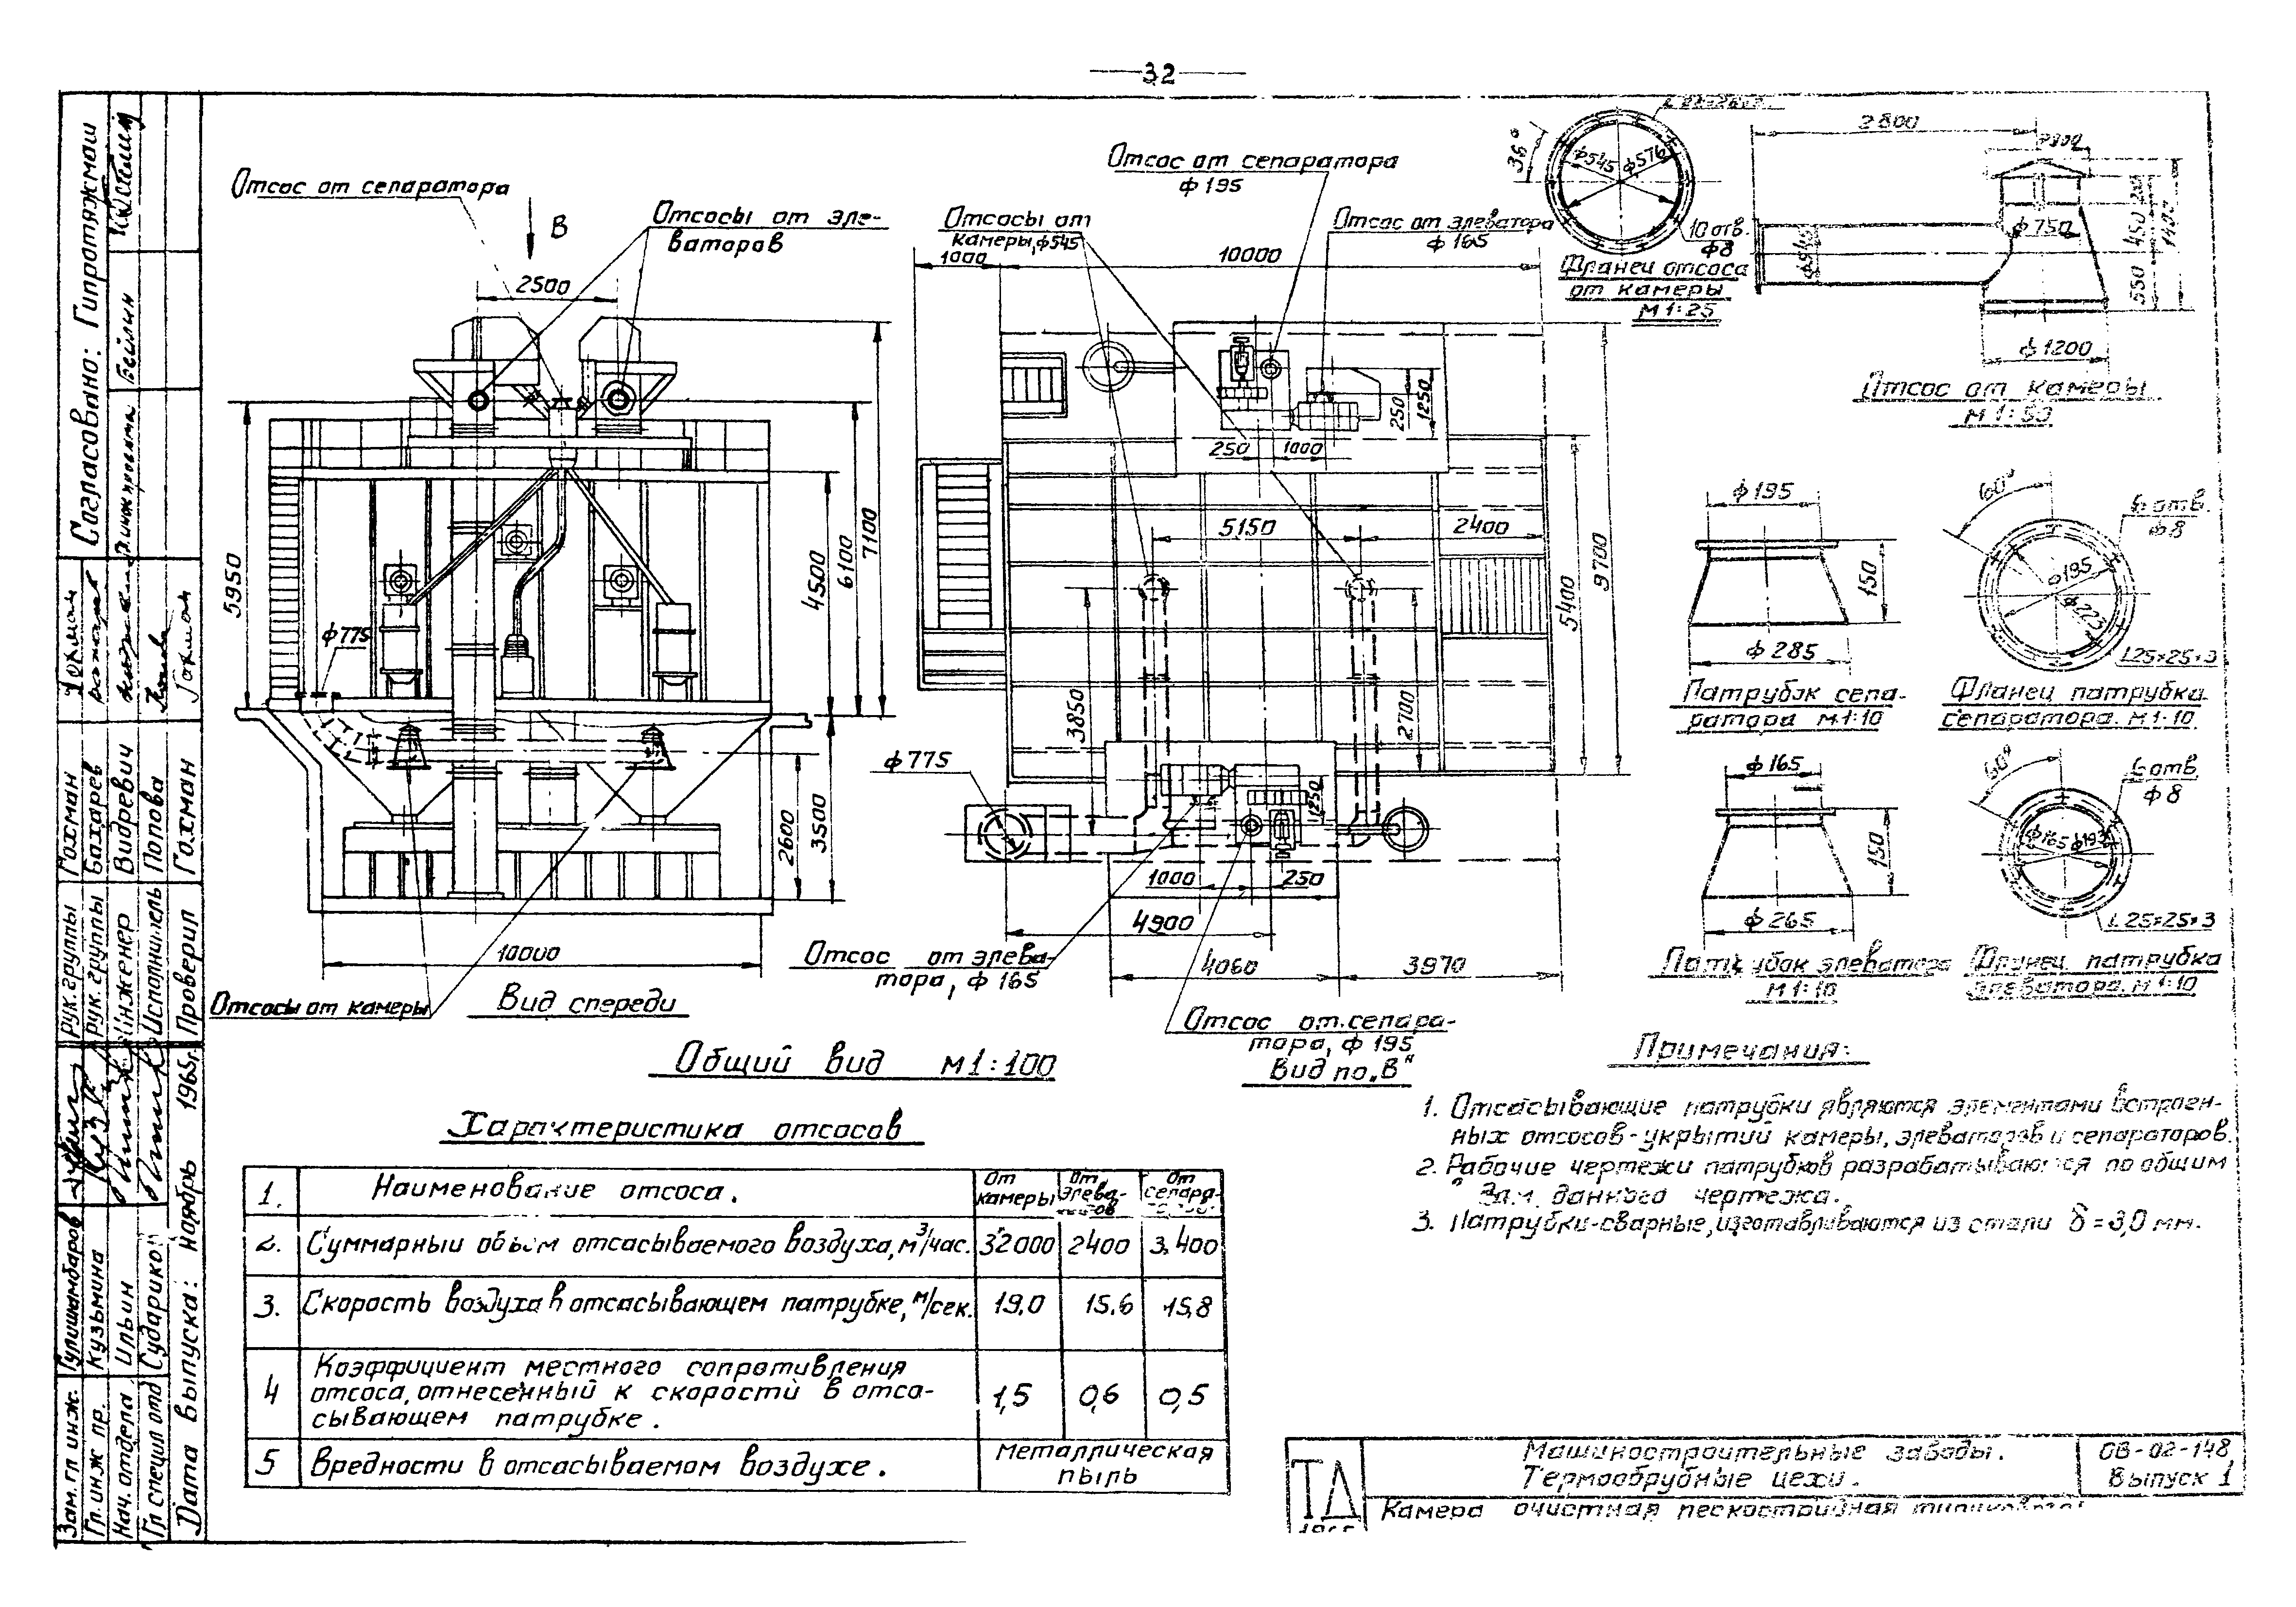 32
Согласовано: Гипротяжмаш
Бейлин
Гохман
Бахарев
Видревич
Попова
Гохман
Рук. группы
Рук. группы
Инженер
Исполнитель
Проверил
Гулишамбаров
Кузьмина
Ильин
Зам. гл инж.
Гл. инж пр.
Нач. отдела
Гл специал отд
Дата выпуска: Ноябрь 1965г.
Отсос от сепаратора
В
Отсосы от эле-
ваторов
2500
5950
ф775
4500
6100
7100
2600
3500
10000
Отсосы от камеры
Вид спереди
Общий вид М1:100
Отсос от сепаратора
ф 195
Отсосы от
камеры, ф545
Отсос от элеватора
ф 165
1000
10000
250
1250
250
1000
5150
2400
5400
9700
3850
2700
ф775
1250
1000
250
4900
4060
3970
Отсос от элева-
тора, ф 165
Отсос от сепара-
тора, ф 195
Вид по „В"
36°
ф545
ф576
10 отв.
ф8
Фланец отсоса
от камеры
М 1:25
2800
ф545
ф750
450
550
1400
ф1200
Отсос от камеры
М 1:50
ф195
150
ф 285
Патрубок сепа-
ратора М1:10
60°
6 отв.
ф8
ф195
ф223
L25×25×3
Фланец патрубка
сепаратора. М 1:10
ф165
150
ф 265
Патрубок элеватора
М 1:10
60°
6 отв.
ф8
ф165
ф193
L25×25×3
Фланец патрубка
элеватора. М 1:10
Примечания:
1. Отсасывающие патрубки являются элементами встроен-
ных отсосов-укрытий камеры, элеваторов и сепараторов.
2. Рабочие чертежи патрубков разрабатываются по общим
данного чертежа.
3. Патрубки-сварные, изготавливаются из стали δ = 3,0 мм.
Характеристика отсосов
1. Наименование отсоса. От камеры От элева- От сепара-
2. Суммарный объем отсасываемого воздуха, м³/час. 32000 2400 3400
3. Скорость воздуха в отсасывающем патрубке, м/сек. 19,0 15,6 15,8
4 Коэффициент местного сопротивления
отсоса, отнесенный к скорости в отса-
сывающем патрубке. 1,5 0,6 0,5
5 Вредности в отсасываемом воздухе. Металлическая
пыль
ТД
Машиностроительные заводы.
Термообрубные цехи.
ОВ-02-148
Выпуск 1
Камера очистная пескоструйная